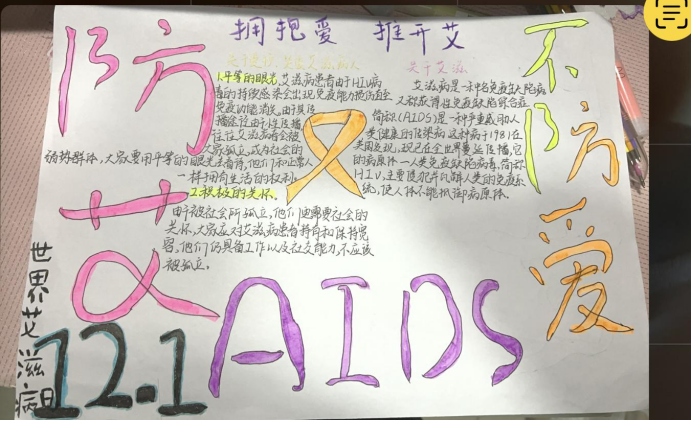 拥抱爱 推开艾
防艾
不防爱
关于艾滋
1.平等的眼光,艾滋病患者由于HIV病
毒的持续感染会出现免疫能力损伤直至
免疫功能消失,由于其传
播途径由于性传播
往往艾滋病者会被
大家孤立,成为社会的
弱势群体,大家要用平等的眼光去看待,他们和正常人
一样拥有生活的权利。
2.积极的关怀。
由于被社会所孤立,他们更需要社会的
关怀,大家应对艾滋病患者持有和保持宽
容,他们仍具备工作以及社交能力,不应该
被孤立。
艾滋病是一种名免疫缺陷病
又称获得性免疫缺陷综合症
简称(AIDS)是一种严重威胁人
类健康的传染病,这种病于1981在
美国发现,现已在全世界蔓延传播,它
的病原体一人类免疫缺陷病毒,简称
HIV,主要侵犯并瓦解人类的免疫系
统,使人体不能抵御病原体。
世界艾滋病日
12.1
AIDS